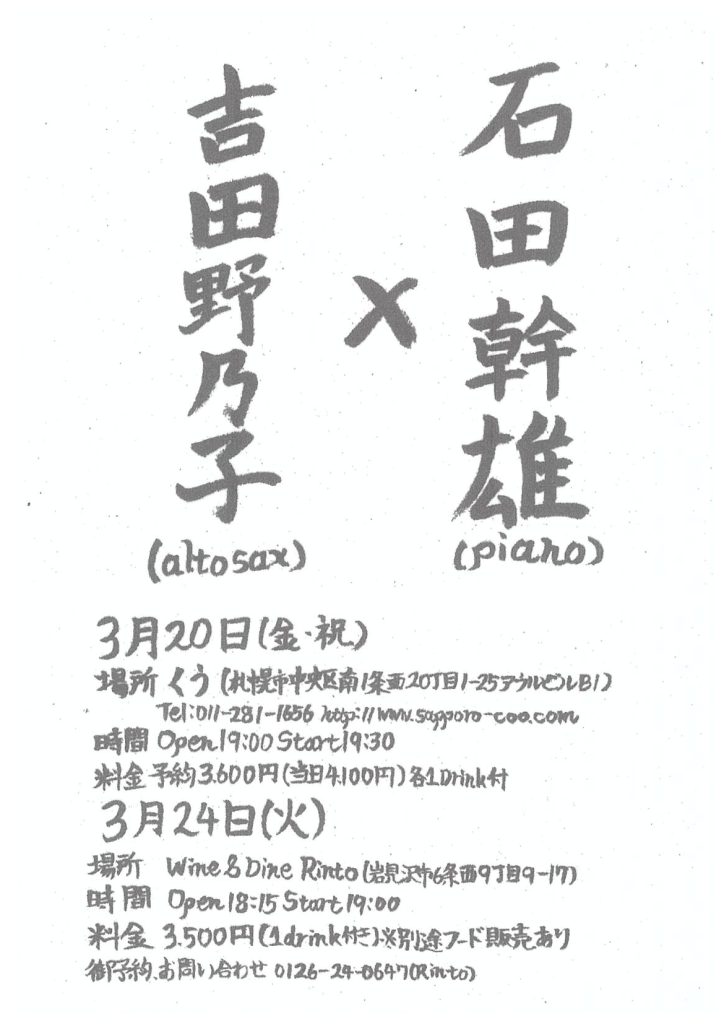 石田幹雄
(piano)
×
吉田野乃子
(altosax)
3月20日(金・祝)
場所 くう (札幌市中央区南1条西20丁目1-25アウルビルB1)
Tel:011-281-1656 http://www.sapporo-coo.com
時間 Open19:00 Start19:30
料金 予約3.600円(当日4.100円)各1Drink付
3月24日(火)
場所 Wine & Dine Rinto (岩見沢市6条西9丁目9-17)
時間 Open18:15 Start19:00
料金 3.500円(1drink付き)※別途フード販売あり
御予約、お問い合わせ 0126-24-0647(Rinto)